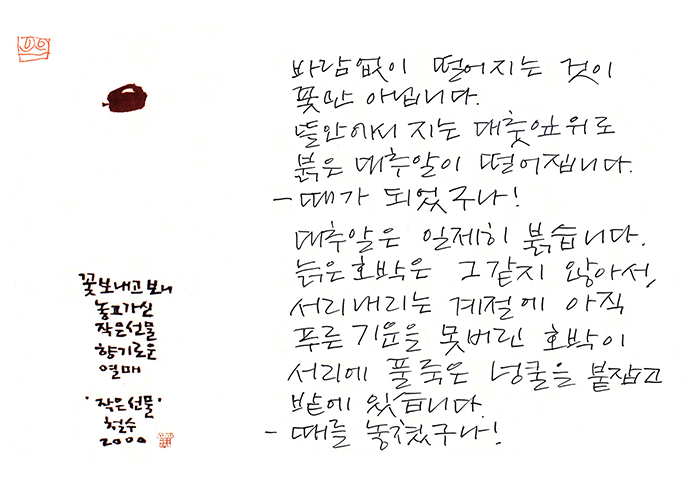 꽃보내고보니
놓고가신
작은선물
향기로운
열매
'작은선물'
철수
2000
바람없이 떨어지는 것이
꽃만 아닙니다.
뜰안에서 지는 대춧잎위로
붉은 대추알이 떨어집니다.
- 때가 되었구나!
대추알은 일제히 붉습니다.
늙은호박은 그같지 않아서,
서리내리는 계절에 아직
푸른 기운을 못버린 호박이
서리에 풀죽은 넝쿨을 붙잡고
밭에 있습니다.
- 때를 놓쳤구나!